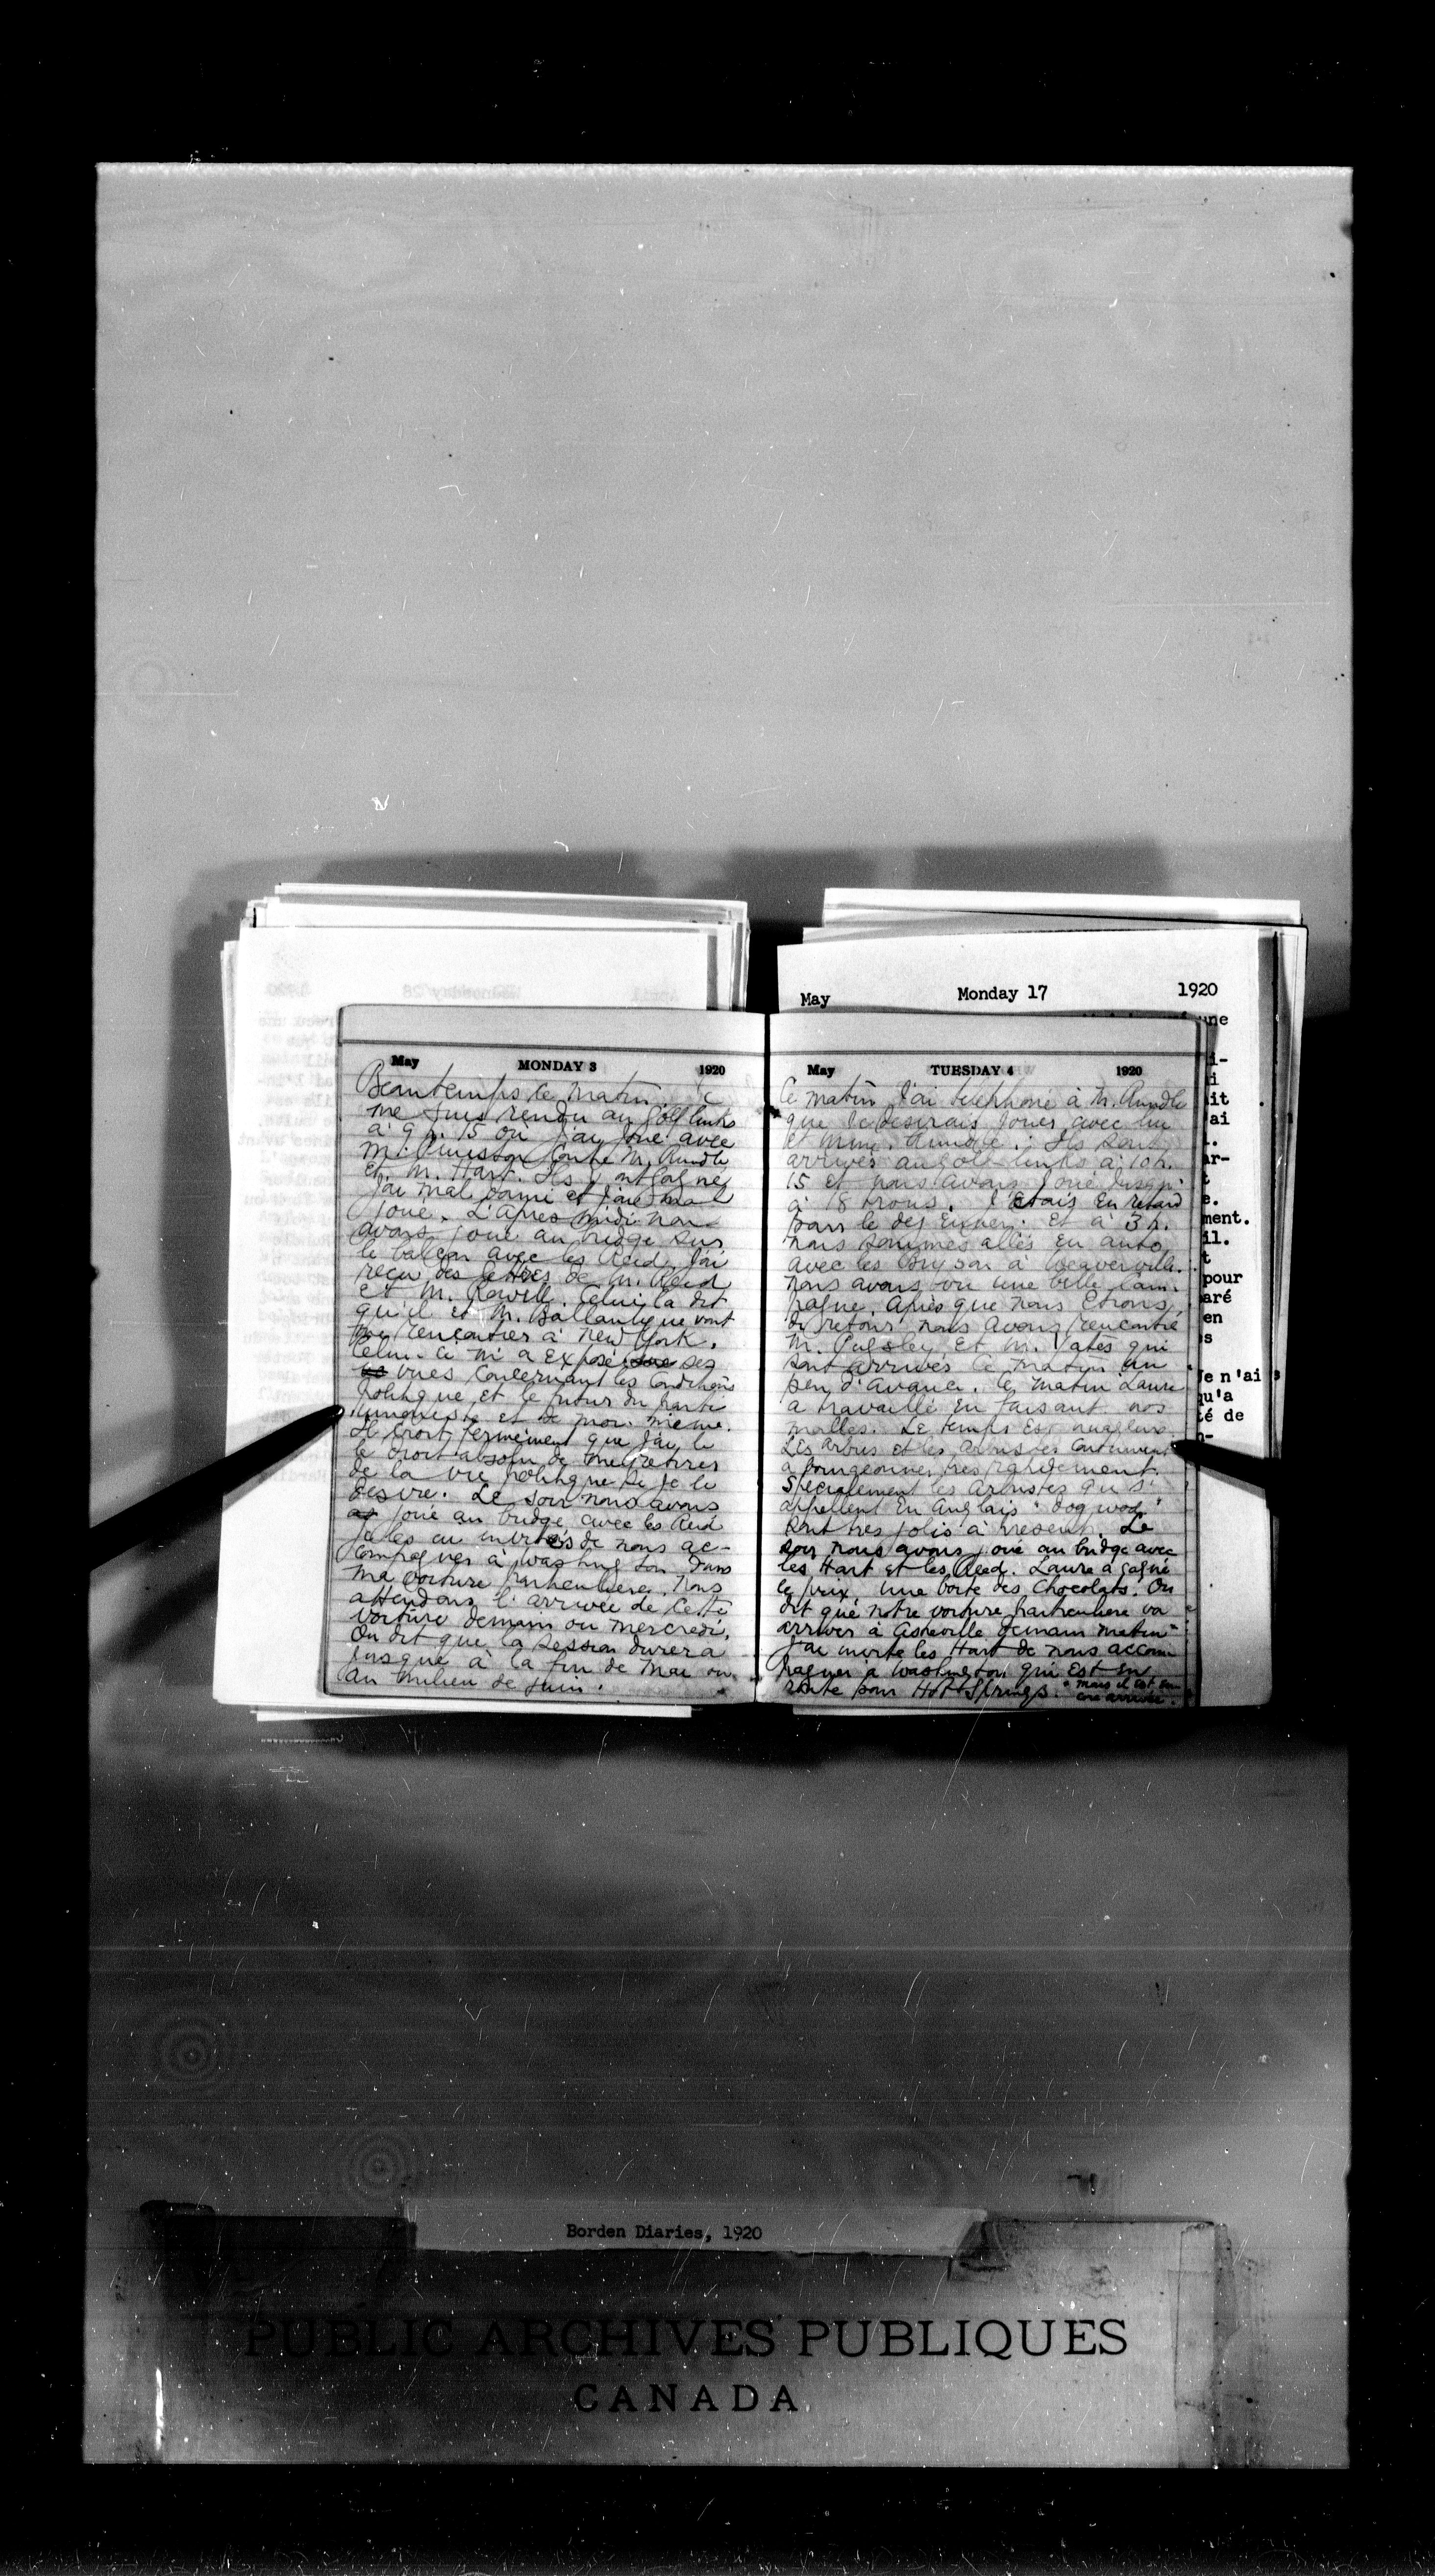 May Monday 17 1920
May MONDAY 3 1920
Beau temps ce matin. Je
me suis rendu au golf links
à 9 h. 15 où j'ai joué avec
M. contre M. Rundle
et M. Hart. Ils y ont gagné
J'ai mal dormi et j'ai mal
joué. L'après midi nous
avons joué au bridge sur
le balcon avec les Reid. J'ai
reçu des lettres de M. Reid
et M. Rowell. Celui la dit
qu'il et M. Ballantyne vont
me rencontrer à New York.
Celui-ci m'a exposé ses
vues concernant les conditions
politique et le futur du parti
unioniste et de moi-même.
Il croit fermement que j'ai le
le droit absolu de me retirer
de la vie politique si je le
desire. Le soir nous avons
joué au bridge avec les Reid
Je les ai invités de nous ac-
compagner à Washington dans
ma voiture particuliere. Nous
attendons l'arrivée de cette
voiture demain ou mercredi.
On dit que la session durera
jusque à la fin de Mai ou
au milieu de Juin.
May TUESDAY 4 1920
Ce matin J'ai telephone à M. Rundle
que je desirais jouer avec lui
et Mme. Rundle. Ils sont
arrivés au golf links à 10 h.
15 et nous avons joué jusqu'
à 18 trous. J'etais en retard
pour le dejeuner. Et à 3 h.
nous sommes allés en auto
avec les à Weaverville.
Nous avons vu une belle cam-
pagne. Après que nous etions
de retour nous avons rencontré
M. Pugsley et M. Yates qui
sont arrivés ce matin un
peu d'avance. Ce matin Laura
a travaillé en faisant nos
malles. Le temps est nuageux.
Les arbres et les arbustes continuent
a bourgeonner tres rapidement.
Specialement les arbustes qui s'
appellent en Anglais "dog wood"
sont tres jolis à present. Le
soir nous avons joué au bridge avec
les Hart et les Reid. Laura a gagné
le prix une boite des Chocolats. On
dit que notre voiture particuliere va
arriver à Asheville demain matin*
J'ai invité les Hart de nous accom
pagner à Washington qui est en
route pour Hot Springs. * mais il est en-
core arrivée.
une
i-
i
it
ai
.
ar-
t
e.
ment.
il.
t
pour
aré
en
s
Je n'ai
qu'a
té de
n-
Borden Diaries, 1920
PUBLIC ARCHIVES PUBLIQUES
CANADA